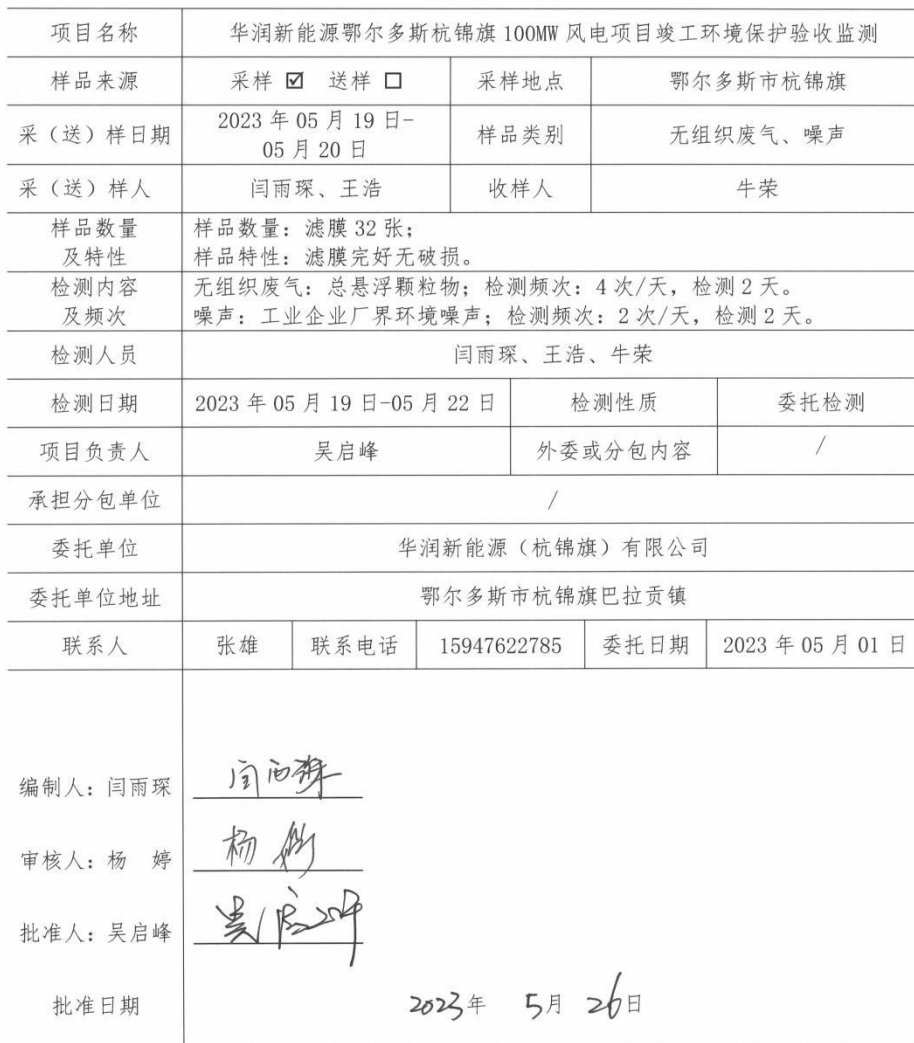 项目名称 华润新能源鄂尔多斯杭锦旗 100MW 风电项目竣工环境保护验收监测
样品来源 采样 ☑ 送样 □ 采样地点 鄂尔多斯市杭锦旗
采（送）样日期 2023 年 05 月 19 日-
05 月 20 日 样品类别 无组织废气、噪声
采（送）样人 闫雨琛、王浩 收样人 牛荣
样品数量 样品数量：滤膜 32 张；
及特性 样品特性：滤膜完好无破损。
检测内容 无组织废气：总悬浮颗粒物；检测频次：4 次/天，检测 2 天。
及频次 噪声：工业企业厂界环境噪声；检测频次：2 次/天，检测 2 天。
检测人员 闫雨琛、王浩、牛荣
检测日期 2023 年 05 月 19 日-05 月 22 日 检测性质 委托检测
项目负责人 吴启峰 外委或分包内容 /
承担分包单位 /
委托单位 华润新能源（杭锦旗）有限公司
委托单位地址 鄂尔多斯市杭锦旗巴拉贡镇
联系人 张雄 联系电话 15947622785 委托日期 2023 年 05 月 01 日
编制人：闫雨琛 闫雨琛
审核人：杨 婷 杨婷
批准人：吴启峰 吴启峰
批准日期 2023年 5月 26日